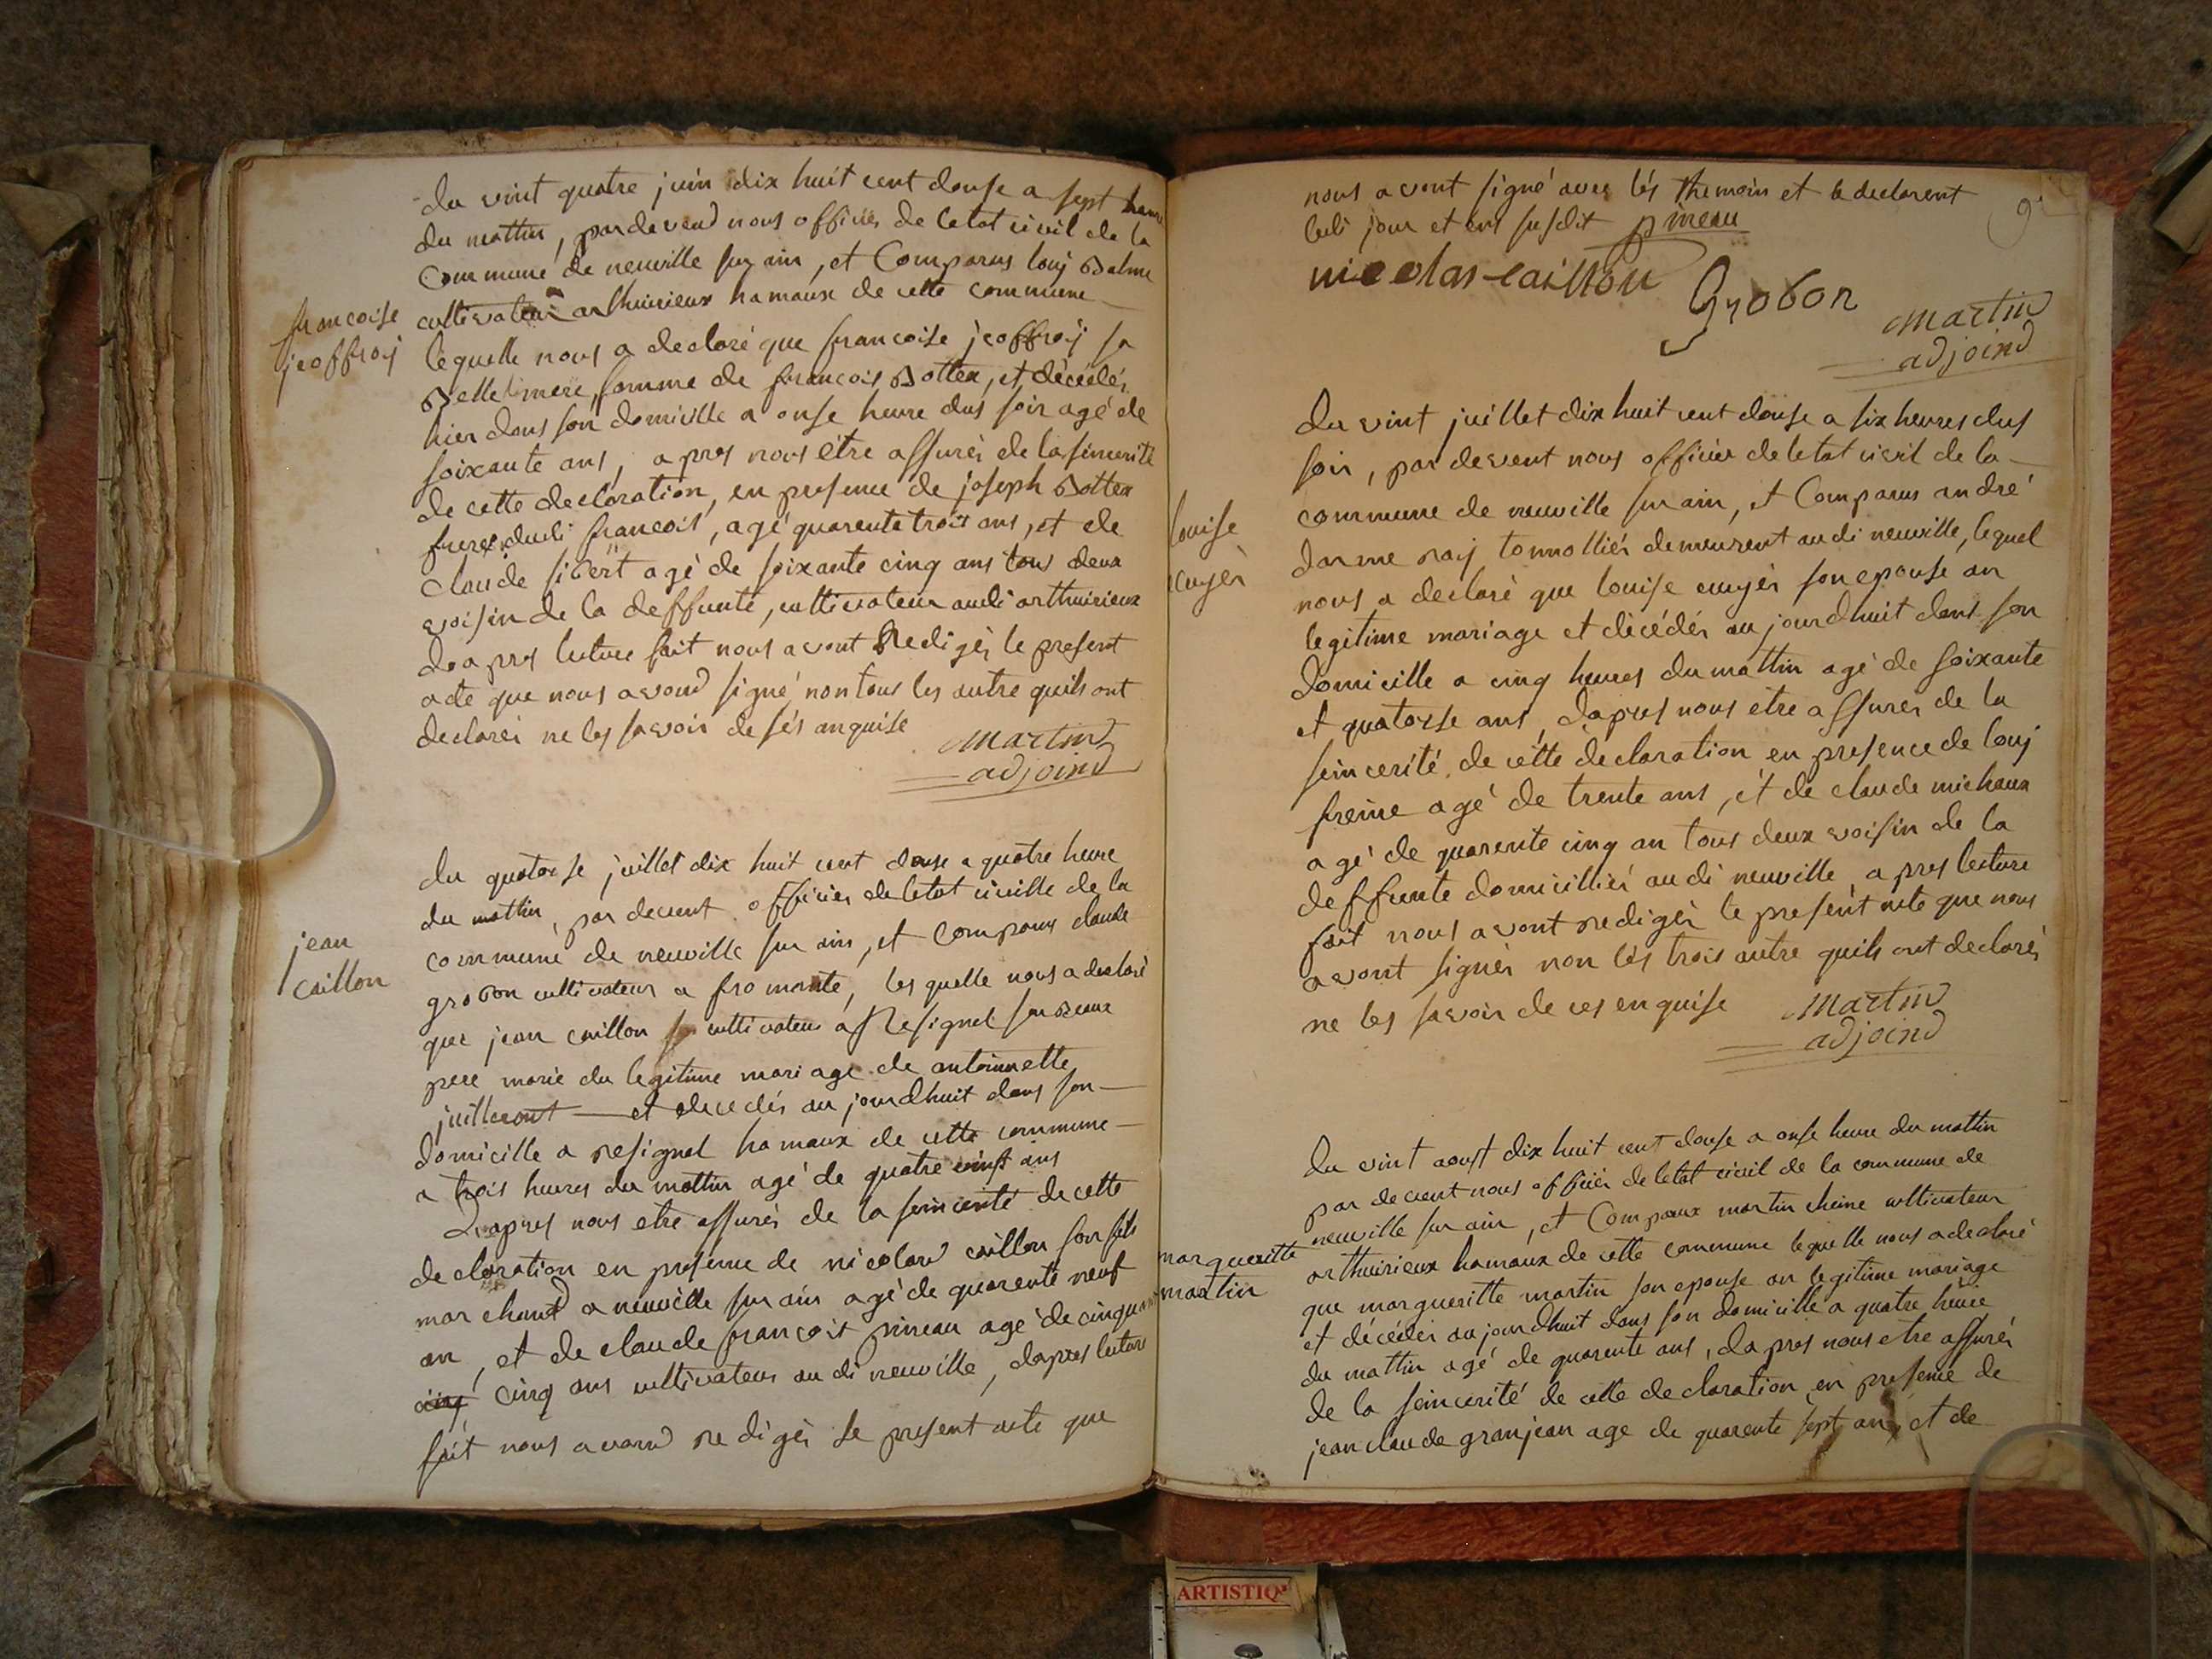 du vint quatre juin dix huit cent douse a sept heure
du mattin, par devend nous officier de letat civil de la
Commune de neuville sur ain, et Comparus louj Balme
cultivateur arthuirieux hamaux de cette commune
francoise
jeoffroij
lequelle nous a declaré que francoise jeoffroij sa
Belle mere, famme de francois Bottex, et décédés
hier dans son domicille a onse heure dus soir agé de
soixante ans, apres nous être assurés de la sincerité
de cette declaration, en presence de joseph Bottex
frere dudi francois, agé quarente trois ans, et de
claude sibert agé de soixante cinq ans tous deux
voisin de la deffunte, cultivateur audi arthuirieux
doapres lecture fait nous avont Redigés le present
acte que nous avond signé non tous les autre quils ont
declarés ne les savoir de sés anquise
martin
adjoind
du quatorse juillet dix huit cent douse a quatre heure
du mattin, par devent officier de letat civille de la
jean
caillon
commune de neuville sur ain, et comparus claude
groBon cultivateur a fromante, les quelle nous a declaré
que jean caillon cultivateur a Resignel son Beaux
pere marié du legitime mariage de antoinnette
juilleront et decedés au jourdhuit dans son
domicille a resignel hamaux de cette commune
a trois heures du mattin agé de quatre vinst ans
Dapres nous etre assurés de la seincerité de cette
declaration en presence de nicolard caillon son fils
marchand a neuville sur ain agé de quarente neuf
an, et de claude francoit pineau agé de cinquant
cinq cinq ans cultivateur au di neuville, dapres lecture
fait nous avond redigés le present acte que
nous avont signé avec lés themoin et le declarent
ledi jour et ent susdit pineau
nicolas caillon
Grobon
martin
adjoind
du vint juillet dix huit cent douse a six heures dus
soir, par devent nous officier de letat civil de la
louise
cuyér
commune de neuville sur ain, et Comparus andré
darme raij tonnolliér demeurent au di neuville, lequel
nous a declaré que louise cuyér son epouse an
legitime mariage et décédés au jourdhuit dans son
domicille a cinq heures du mattin agé de soixante
et quatorse ans, dapres nous etre assurés de la
seincerité de cette declaration en presence de louj
freine agé de trente ans, et de claude michaux
agé de quarente cinq an tous deux voisin de la
deffunte domicilliés au di neuville apres lecture
fait nous avont redigés le present acte que nous
avont signés non lés trois autre quils ont declarés
ne les savoir de ces enquise
martin
adjoind
du vint aoust dix huit cent douse a onse heure du mattin
par devent nous officiér de letat civil de la commune de
neuville sur ain, et Comparux martin cheine cultivateur
margueritte
martin
arthuirieux hamaux de cette commune lequelle nous a declaré
que margueritte martin son epouse an legitime mariage
et décédés aujourdhuit dans son domicille a quatre heure
du mattin agé de quarente ans, dapres nous etre assurés
de la seincerité de cette declaration en presence de
jean claude granjean age de quarente sept an, et de
ARTISTIQ